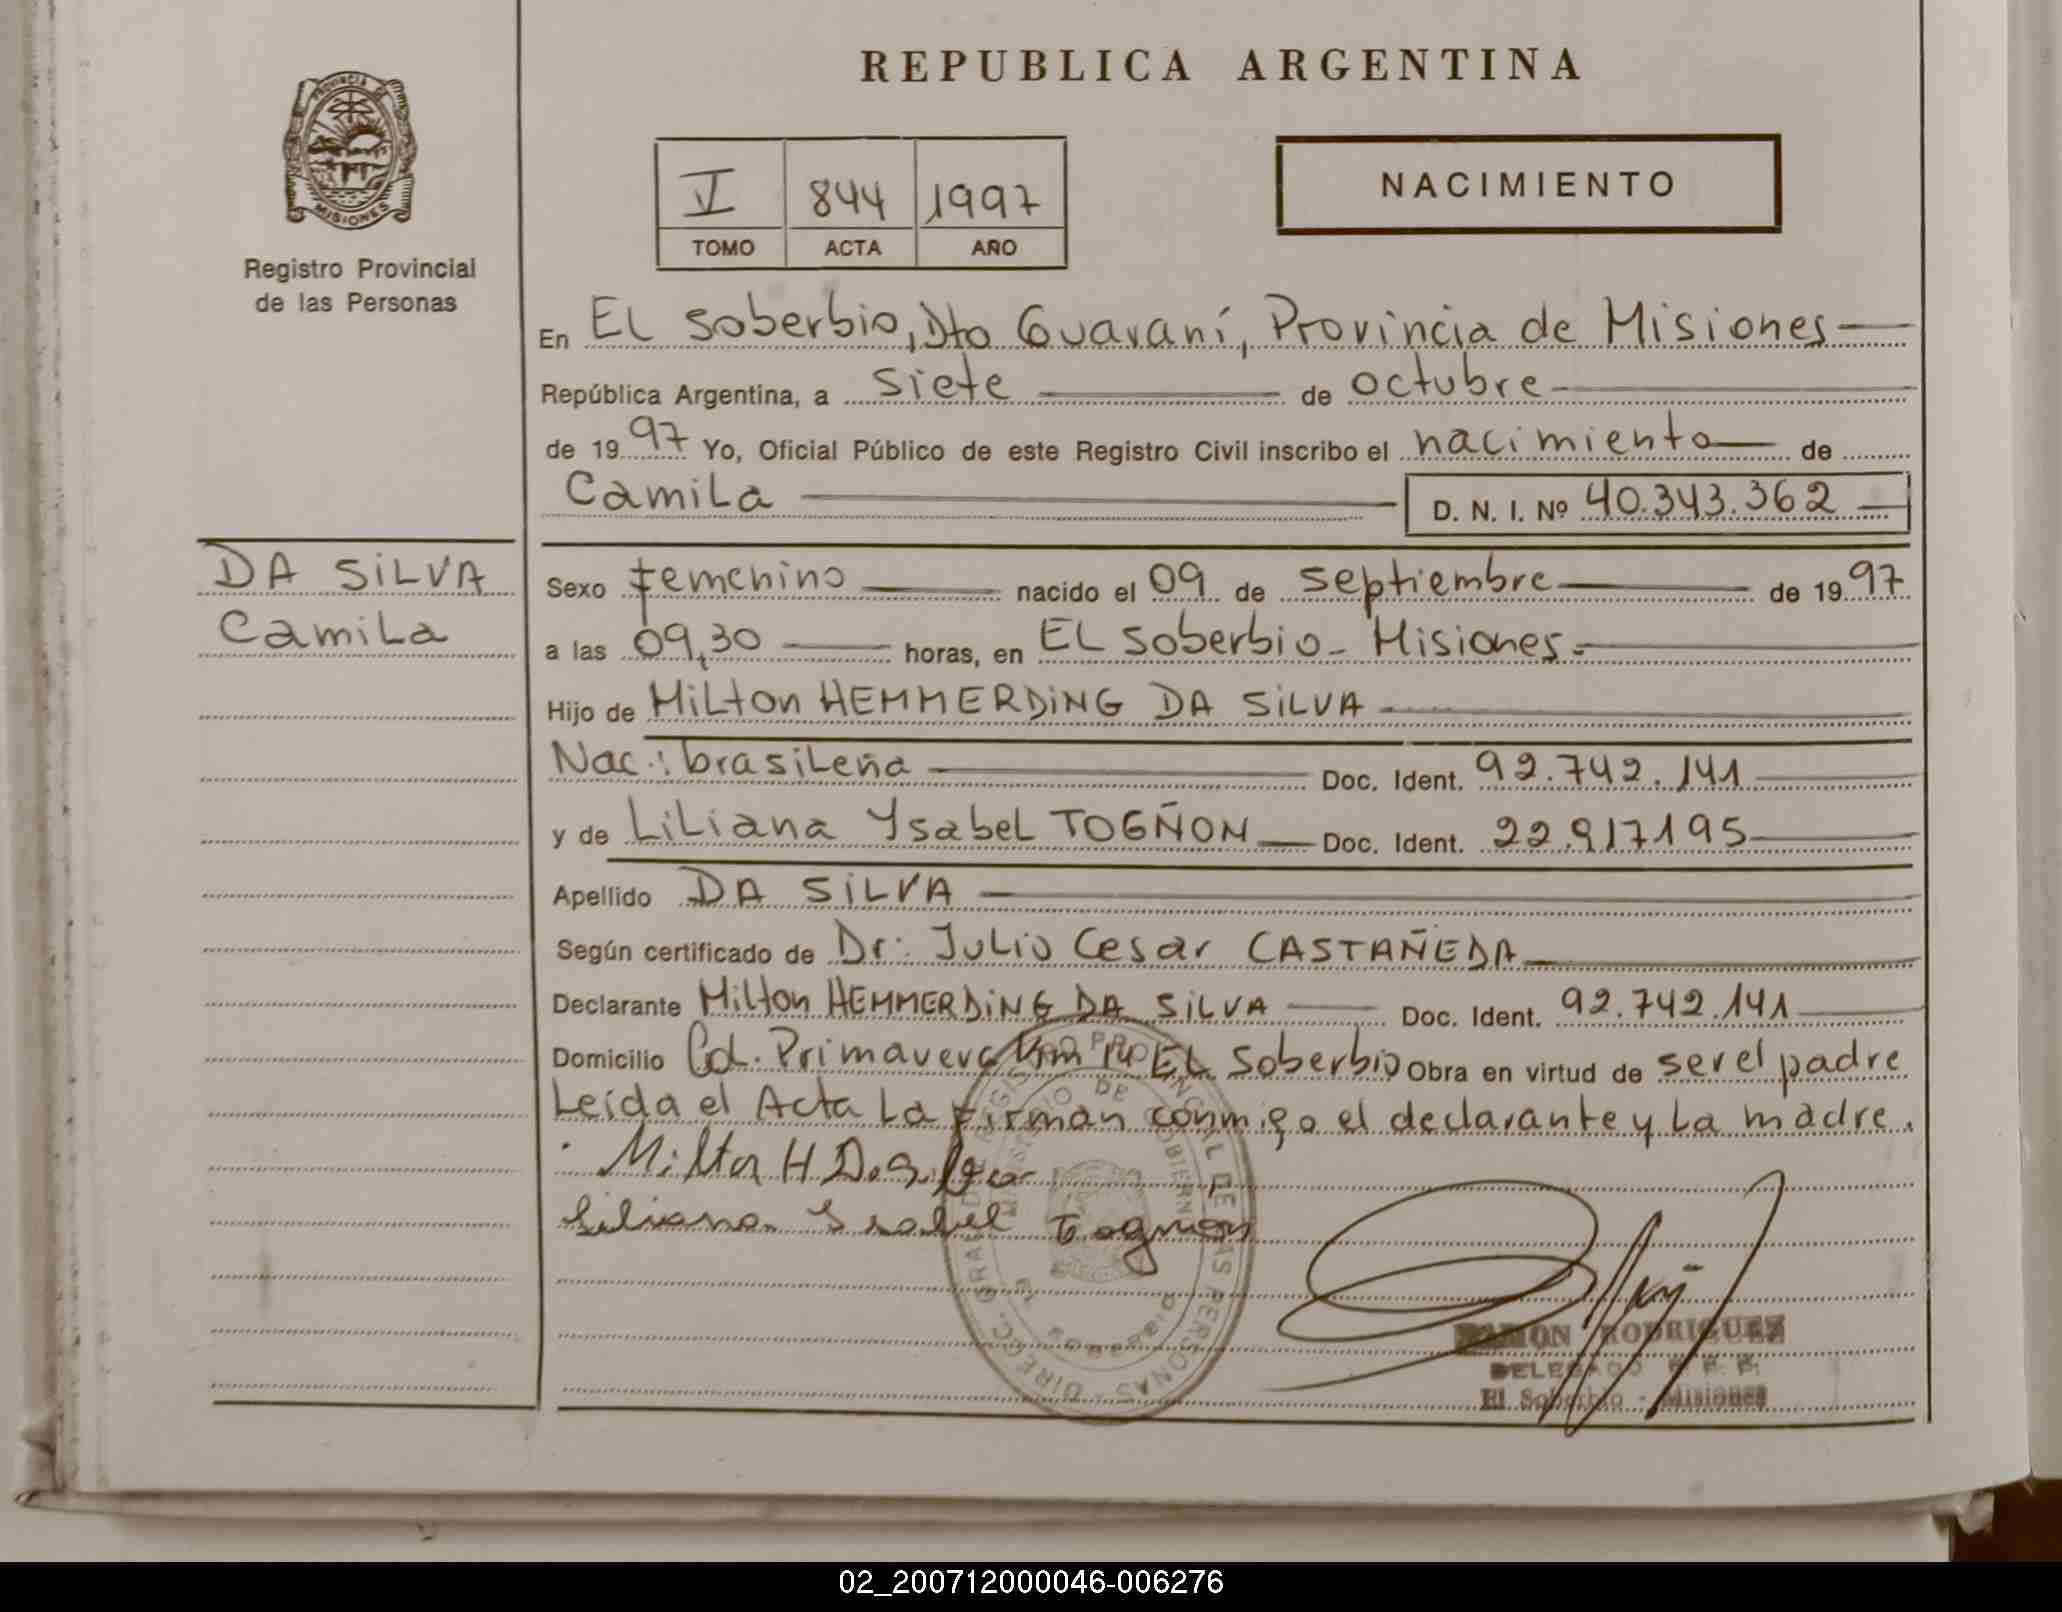 REPUBLICA ARGENTINA
PROVINCIA DE
MISIONES
Registro Provincial
de las Personas
V 844 1997
TOMO ACTA AÑO
NACIMIENTO
En EL Soberbio, Dto Guaraní, Provincia de Misiones
República Argentina, a siete de octubre
de 1997 Yo, Oficial Público de este Registro Civil inscribo el nacimiento de
Camila D. N. I. Nº 40.343.362
DA SILVA
Camila
Sexo femenino nacido el 09 de septiembre de 1997
a las 09,30 horas, en EL Soberbio - Misiones.
Hijo de Milton HEMMERDING DA SILVA
Nac.: brasileña Doc. Ident. 92.742.141
y de Liliana Ysabel TOGÑON Doc. Ident. 22.917195
Apellido DA SILVA
Según certificado de Dr: Julio Cesar CASTAÑEDA
Declarante Milton HEMMERDING DA SILVA Doc. Ident. 92.742.141
Domicilio Col. Primavera Km 14 EL Soberbio Obra en virtud de ser el padre
Leída el Acta La firman conmigo el declarante y La madre.
Milton H. Da Silva
Liliana Ysabel Togñon
RAMON RODRIGUEZ
DELEGADO
El Soberbio - Misiones
02_200712000046-006276